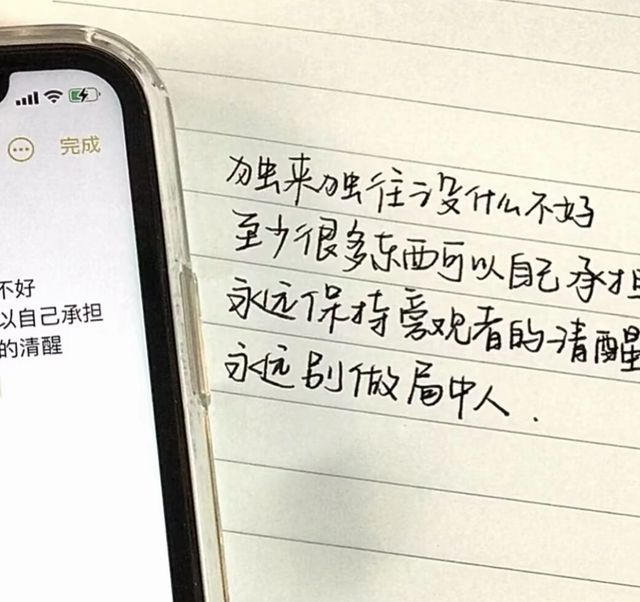 完成
不好
以自己承担
的清醒
独来独往没什么不好
至少很多东西可以自己承担
永远保持旁观者的清醒
永远别做局中人.